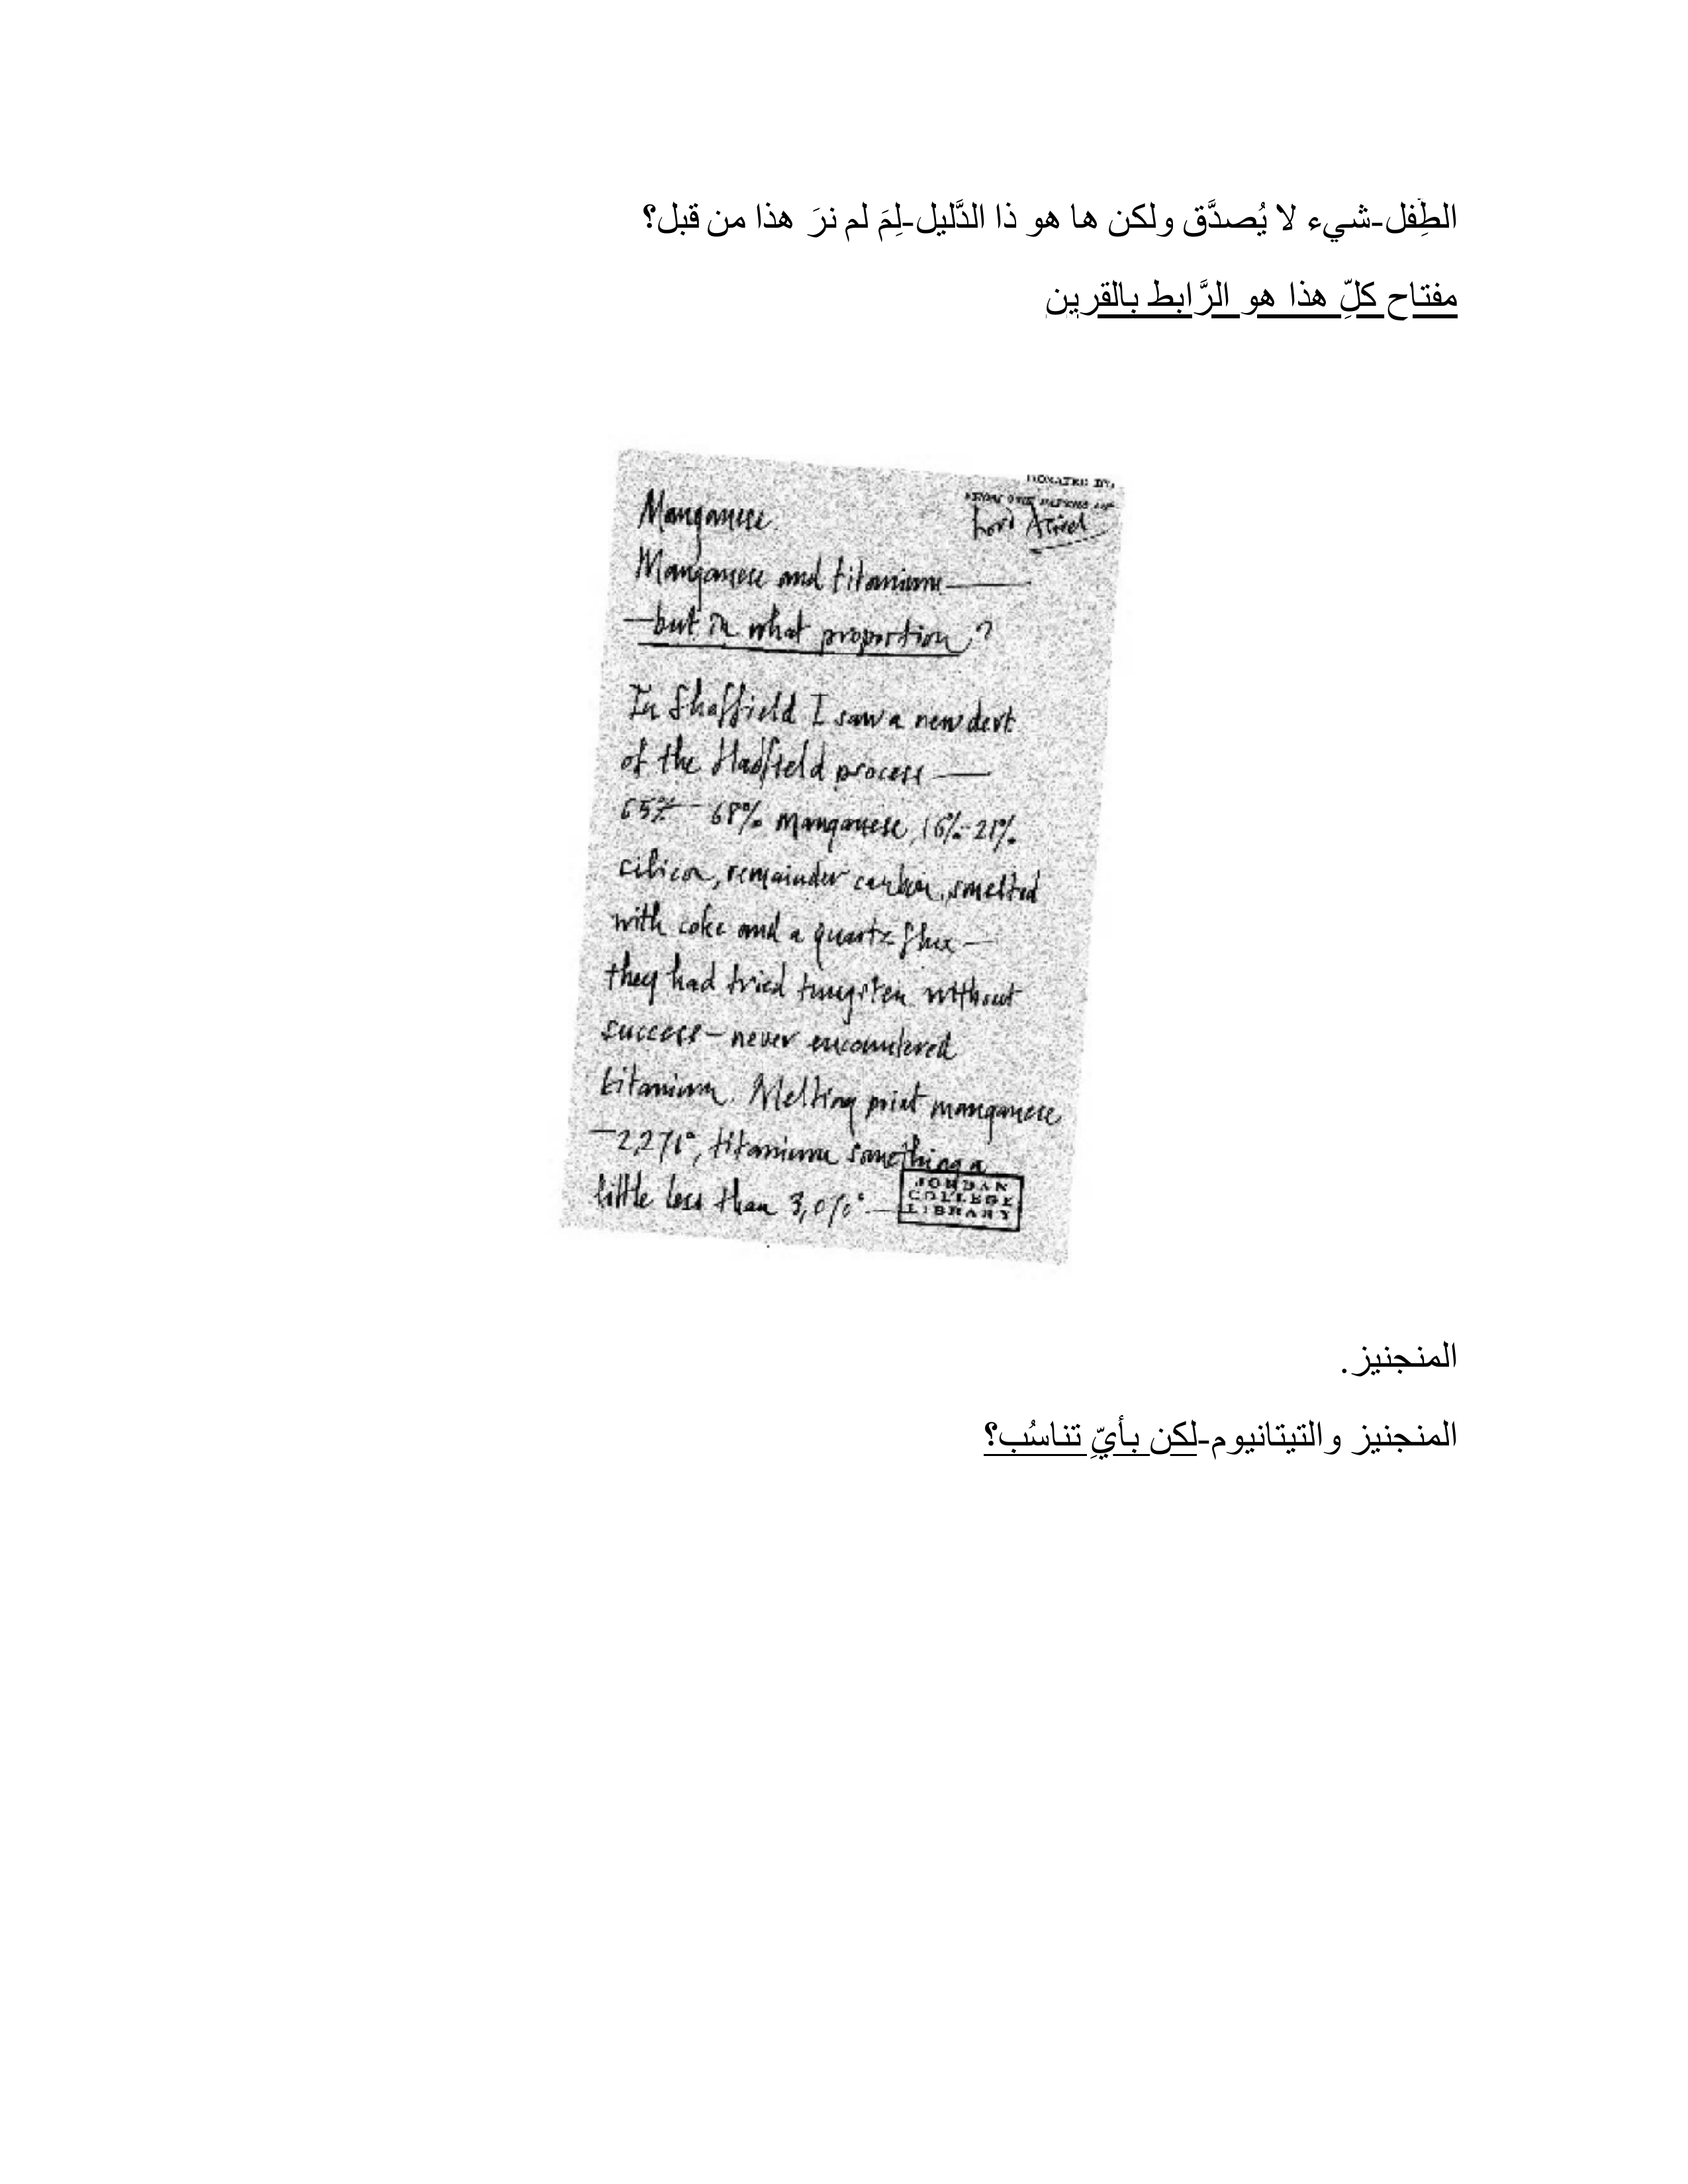 الطِّفل-شيء لا يُصدَّق ولكن ها هو ذا الدَّليل-لِمَ لم نرَ هذا من قبل؟
مفتاح كلِّ هذا هو الرَّابط بالقرين
DONATED BY
Lord Asriel
Manganese.
Manganese and titanium—
—but in what proportion?
In Sheffield I saw a new devt.
of the Hadfield process—
65%—68% manganese, 16%-21%
silicon, remainder carbon, smelted
with coke and a quartz flux—
they had tried tungsten without
success—never encountered
titanium. Melting point manganese
—2,271°, titanium something a
little less than
JORDAN
COLLEGE
LIBRARY
المنجنيز.
المنجنيز والتيتانيوم-لكن بأيِّ تناسُب؟